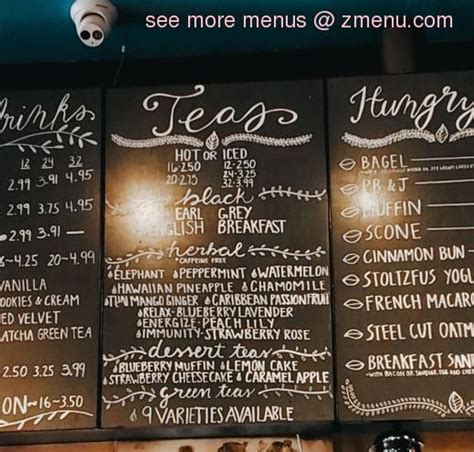 see more menus @ zmenu.com
rinks
12 24 32
2.99 3.91 4.95
2.99 3.75 4.95
2.99 3.91 —
~4.25 20~4.99
VANILLA
OOKIES & CREAM
ED VELVET
ATCHA GREEN TEA
2.50 3.25 3.99
ON~16~3.50
Teas
HOT OR ICED
16-2.50 12-2.50
20-2.75 24-3.25
32-3.99
black
EARL GREY
ENGLISH BREAKFAST
herbal
CAFFEINE FREE
ELEPHANT PEPPERMINT WATERMELON
HAWAIIAN PINEAPPLE CHAMOMILE
THAI MANGO GINGER CARIBBEAN PASSIONFRUIT
RELAX-BLUEBERRY LAVENDER
ENERGIZE-PEACH LILY
IMMUNITY-STRAWBERRY ROSE
dessert teas
BLUEBERRY MUFFIN LEMON CAKE
STRAWBERRY CHEESECAKE CARAMEL APPLE
green teas
9 VARIETIES AVAILABLE
Hungry
BAGEL
PB & J
MUFFIN
SCONE
CINNAMON BUN -
STOLTZFUS YOG
FRENCH MACAR
STEEL CUT OATM
BREAKFAST SAN
-WITH BACON OR SAUSAGE, EGG AND CHEE